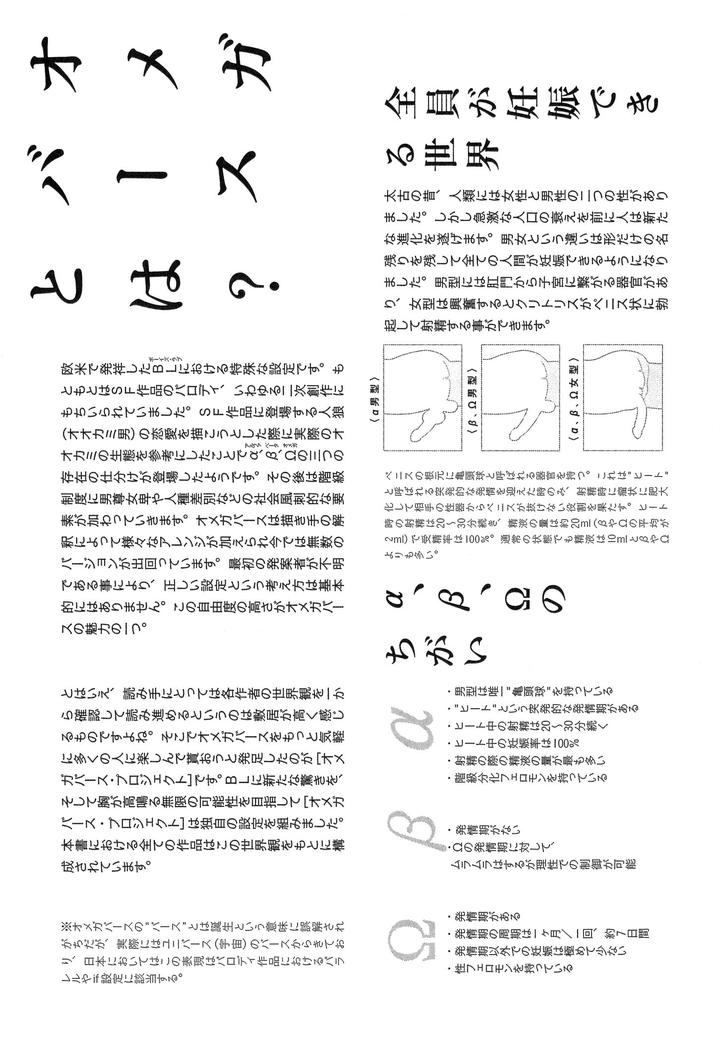 オメガ
バース
とは?
ボーイズ・ラブ
欧米で発祥したBLにおける特殊な設定です。も
ともとはSF作品のパロディ、いわゆる二次創作に
もちいられていました。SF作品に登場する人狼
(オオカミ男)の恋愛を描こうとした際に実際のオ
アルファ ベータ オメガ
オカミの生態を参考にしたことでα、β、Ωの三つの
存在の仕分けが登場したようです。その後は階級
制度に男尊女卑や人種差別などの社会風刺的な要
素が加わっていきます。オメガバースは描き手の解
釈によって様々なアレンジが加えられ今では無数の
バージョンが出回っています。最初の発案者が不明
である事により、正しい設定という考え方は基本
的にはありません。この自由度の高さがオメガバー
スの魅力の一つ。
とはいえ、読み手にとっては各作者の世界観を一か
ら確認して読み進めるというのは敷居が高く感じ
るものですよね。そこでオメガバースをもっと気軽
に多くの人に楽しんで貰おうと発足したのが[オメ
ガバース・プロジェクト]です。BLに新たな驚きを、
そして胸が高鳴る無限の可能性を目指して[オメガ
バース・プロジェクト]は独自の設定を組みました。
本書における全ての作品はこの世界観をもとに構
成されています。
※オメガバースの"バース"とは誕生という意味に誤解され
がちだが、実際にはユニバース(宇宙)のバースからきてお
り、日本においてはこの表現はパロディ作品におけるパラ
レルやif設定に該当する。
全員が妊娠でき
る世界
太古の昔、人類には女性と男性の二つの性があり
ました。しかし急激な人口の衰えを前に人は新た
な進化を遂げます。男女という違いは形だけの名
残りを残して全ての人間が妊娠できるようになり
ました。男型には肛門から子宮に繋がる器官があ
り、女型は興奮するとクリトリスがペニス状に勃
起して射精する事ができます。
〈α男型〉
〈β、Ω男型〉
〈α、β、Ω女型〉
ペニスの根元に亀頭球と呼ばれる器官を持つ。これは"ヒート"
と呼ばれる突発的な発情を迎えた時のみ、射精時に瘤状に肥大
化して相手の性器からペニスが抜けない役割を果たす。ヒート
時の射精は20~30分続き、精液の量は約20ml(βやΩの平均が
2ml)で受精率は100%。通常の状態でも精液は10mlとβやΩ
よりも多い。
α、β、Ωの
ちがい
α
・男型は唯一"亀頭球"を持っている
・"ヒート"という突発的な発情期がある
・ヒート中の射精は20~30分続く
・ヒート中の妊娠率は100%
・射精の際の精液の量が最も多い
・階級分化フェロモンを持っている
β
・発情期がない
・Ωの発情期に対して、
ムラムラはするが理性での制御が可能
Ω
・発情期がある
・発情期の周期は一ヶ月/一回、約7日間
・発情期以外での妊娠は極めて少ない
・性フェロモンを持っている